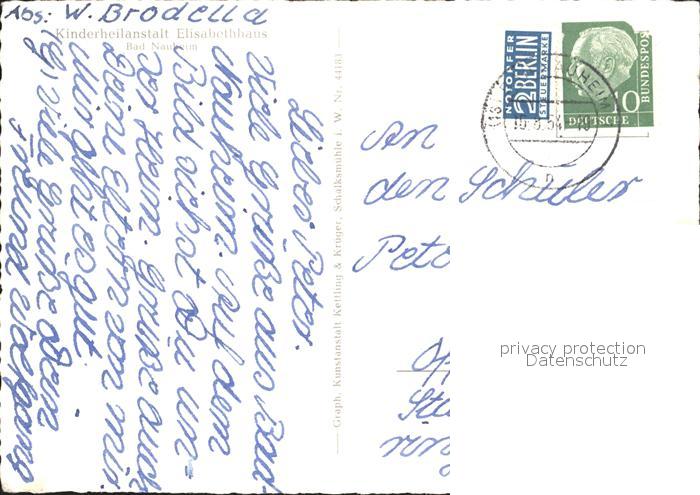 Abs: W. Brodella
Kinderheilanstalt Elisabethhaus
Bad Nauheim
Lieber Peter.
Viele Grüße aus Bad-
Nauheim. Auf dem
Bild siehst Du un-
ser Heim. Grüße auch
Deine Eltern von mir
mir geht es gut.
Viele Grüße Dein
Freund Wolfgang
Graph. Kunstanstalt Kettling & Krüger, Schalksmühle i. W. Nr. 44181
NOTOPFER
2 BERLIN
STEUERMARKE
10
DEUTSCHE
BUNDESPOST
An
den Schüler
Pete
privacy protection
Datenschutz